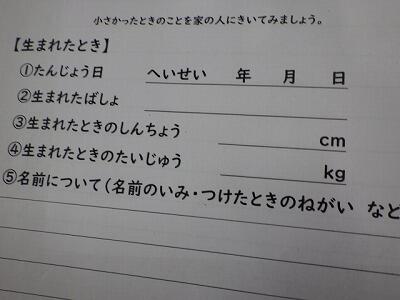 小さかったときのことを家の人にきいてみましょう。
【生まれたとき】
①たんじょう日 へいせい 年 月 日
②生まれたばしょ
③生まれたときのしんちょう cm
④生まれたときのたいじゅう kg
⑤名前について(名前のいみ・つけたときのねがい など